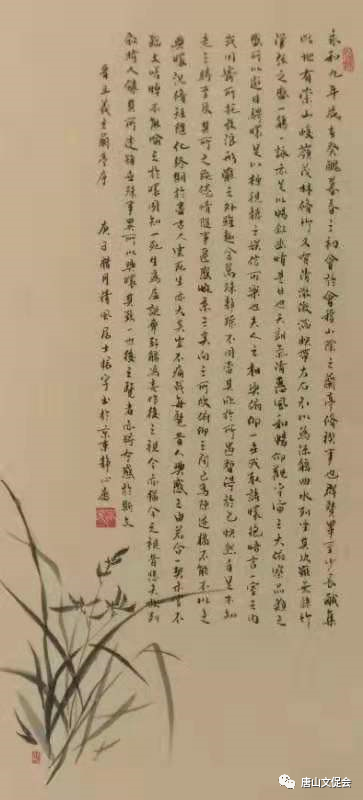 永和九年歲在癸醜暮春之初會於會稽山陰之蘭亭修禊事也群賢畢至少長鹹集
此地有崇山峻嶺茂林修竹又有清流激湍映帶左右引以為流觴曲水列坐其次雖無絲竹
管弦之盛一觴一詠亦足以暢敘幽情是日也天朗氣清惠風和暢仰觀宇宙之大俯察品類之
盛所以遊目騁懷足以極視聽之娛信可樂也夫人之相與俯仰一世或取諸懷抱晤言一室之內
或因寄所托放浪形骸之外雖趣舍萬殊靜躁不同當其欣於所遇暫得於己快然自足不知
老之將至及其所之既倦情隨事遷感慨系之矣向之所欣俯仰之間已為陳迹猶不能不以之
興懷況修短隨化終期於盡古人雲死生亦大矣豈不痛哉每覽昔人興感之由若合一契未嘗不
臨文嗟悼不能喻之於懷固知一死生為虛誕齊彭殤為妄作後之視今亦猶今之視昔悲夫故列
敘時人錄其所述雖世殊事異所以興懷其致一也後之覽者亦將有感於斯文
晉王羲之蘭亭序 庚子臘月清風居士楊宇書於京東靜心齋
唐山文促会